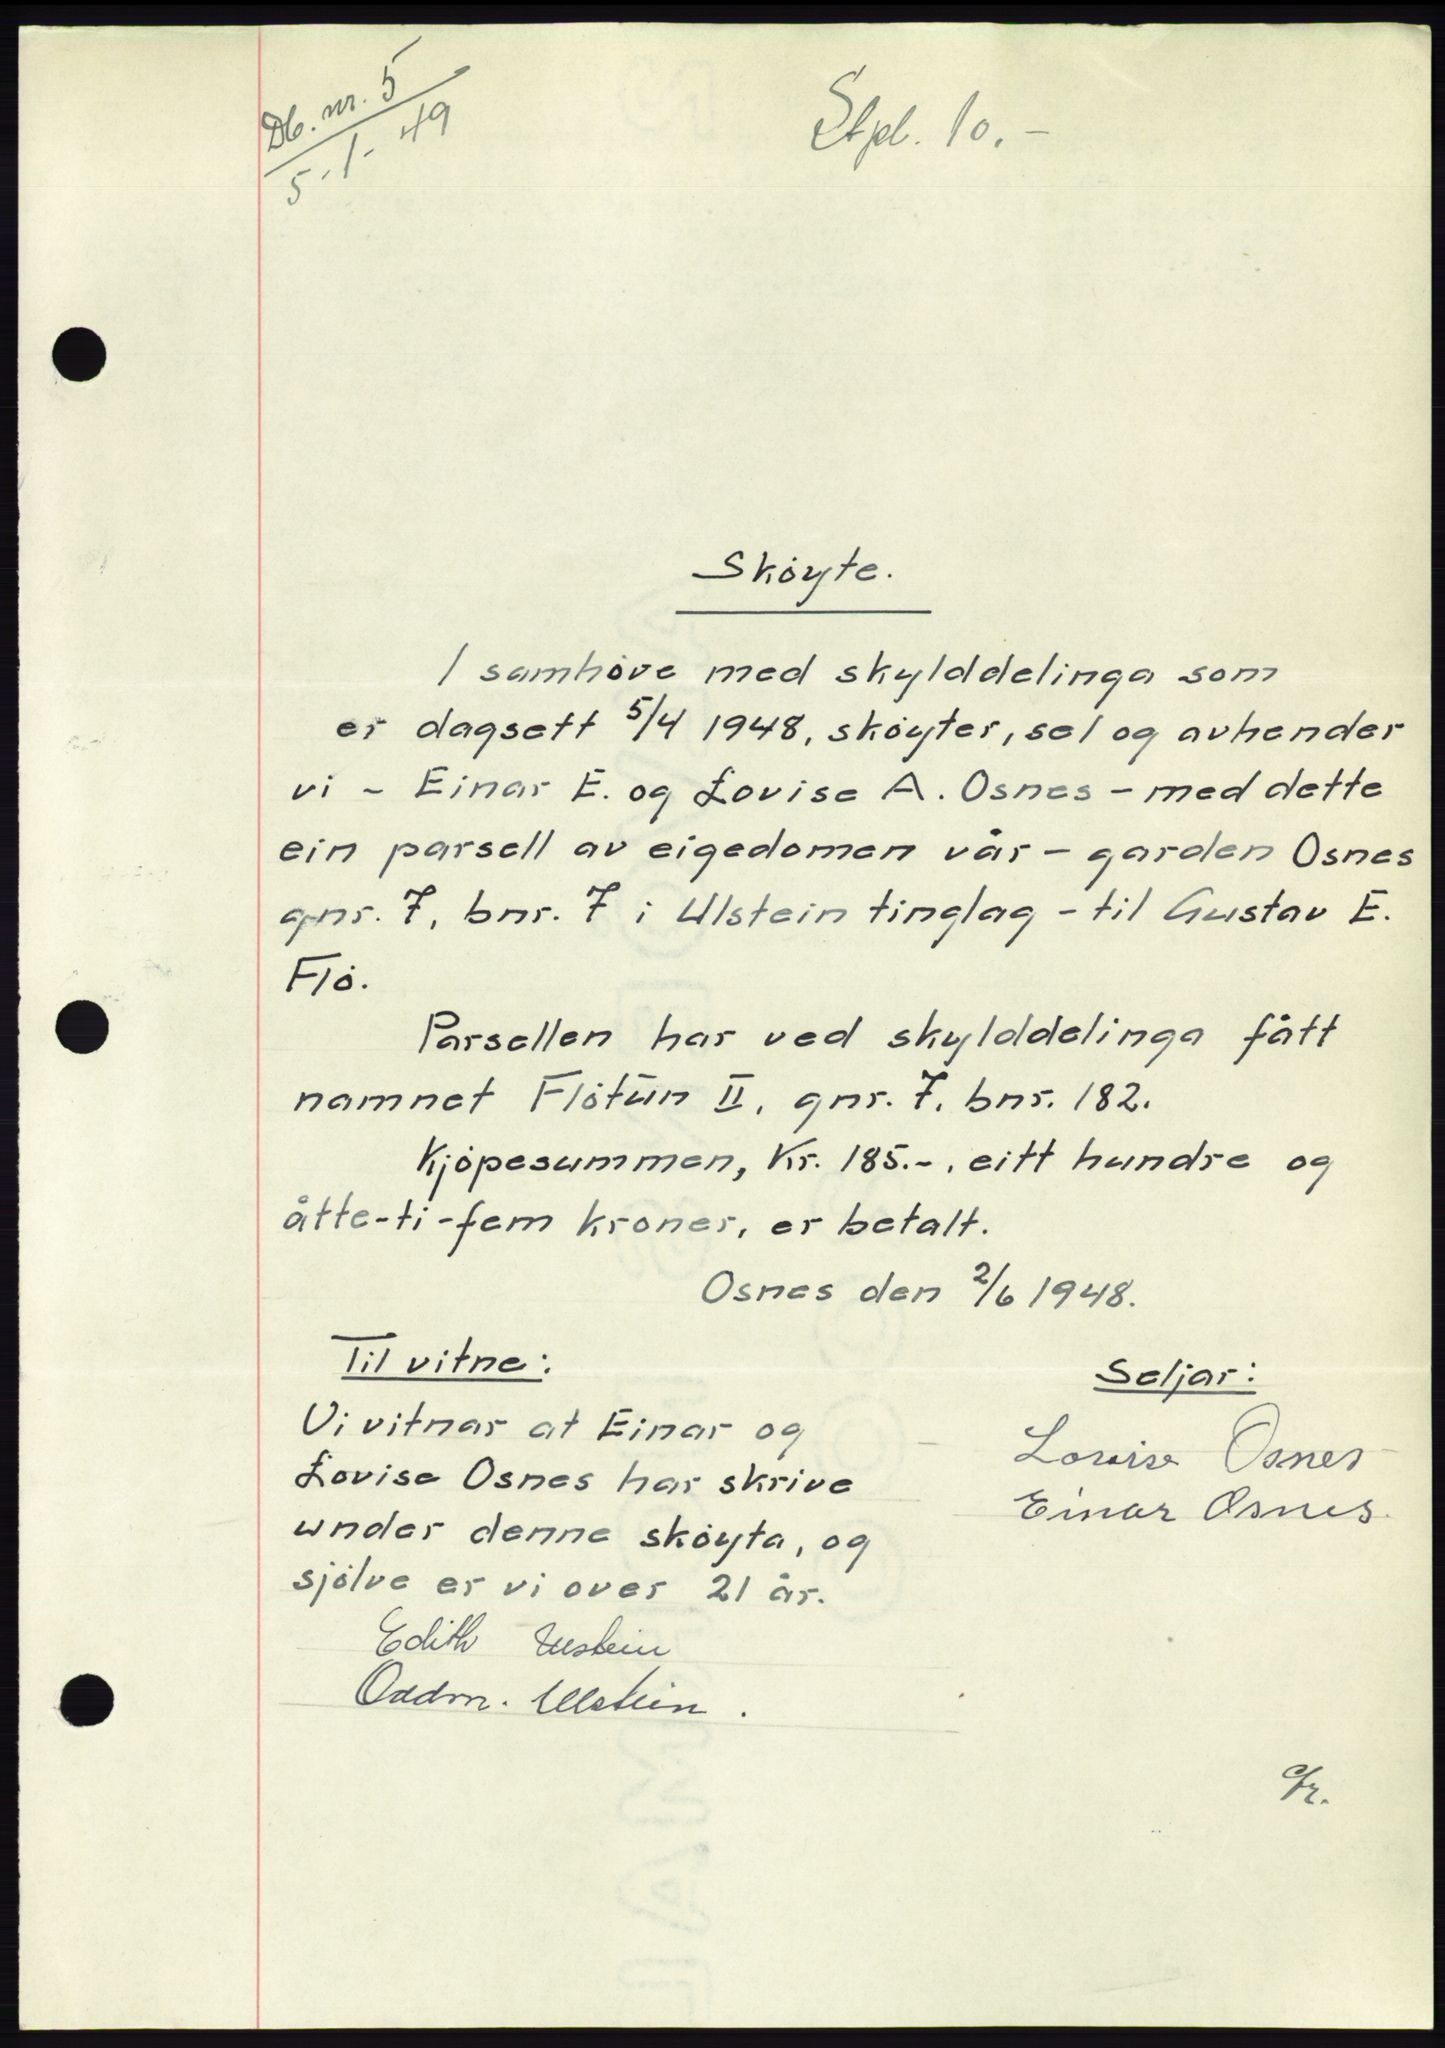 Db. nr. 5
5-1-49
Stpl. 10.-
Sköyte.
I samhöve med skylddelinga som
er dagsett 5/4 1948, sköyter, sel og avhender
vi - Einar E. og Lovise A. Osnes - med dette
ein parsell av eigedomen vår - garden Osnes
gnr. 7, bnr. 7 i Ulstein tinglag - til Gustav E.
Flö.
Parsellen har ved skylddelinga fått
namnet Flötun II, gnr. 7, bnr. 182.
Kjöpesummen, Kr. 185.-, eitt hundre og
åtte-ti-fem kroner, er betalt.
Osnes den 2/6 1948.
Til vitne:
Vi vitnar at Einar og
Lovise Osnes har skrive
under denne sköyta, og
sjölve er vi over 21 år.
Edith Ulstein
Oddm. Ulstein.
Seljar:
Lovise Osnes
Einar Osnes.